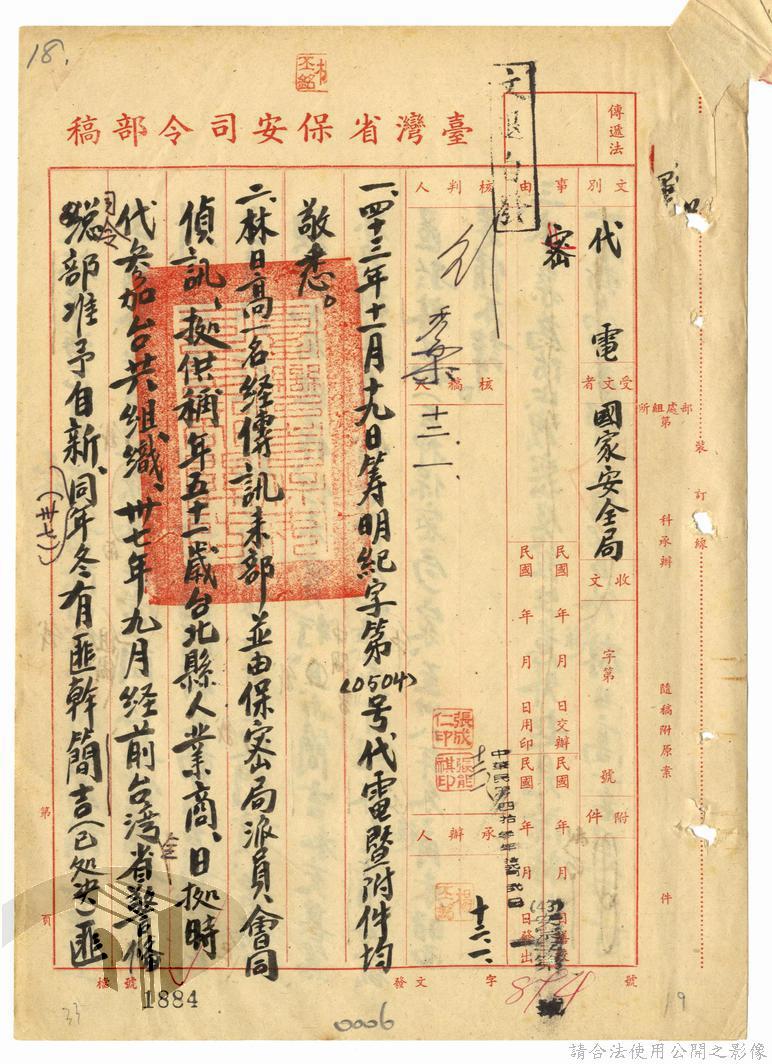 18.
臺灣省保安司令部稿
傳遞法
文別
代電
密
事由
受文者
國家安全局
核判人
核稿人
十二.一
收文
字第
號
附件
民國 年 月 日交辦
民國 年 月 日用印
民國 年 月
民國 年 月 日發出
承辦人
張成仁印
張能祺印
十二.一
(43)
814
部處組所
第
科承辦
隨稿附原案
件
裝訂線
一、四十三年十一月十九日筹明紀字第(0504)号代電暨附件均
敬悉。
二、林日高一名经傳訊来部並由保密局派員會同
偵訊、拠供稱年五十一歲台北縣人業商、日拠時
代参加台共组織、卅七年九月经前台湾省警備
司令部准予自新、同年(卅七)冬有匪幹簡吉(已处决)匪
第 頁
檔號
發文 字
號
1884
0006
33
19
請合法使用公開之影像